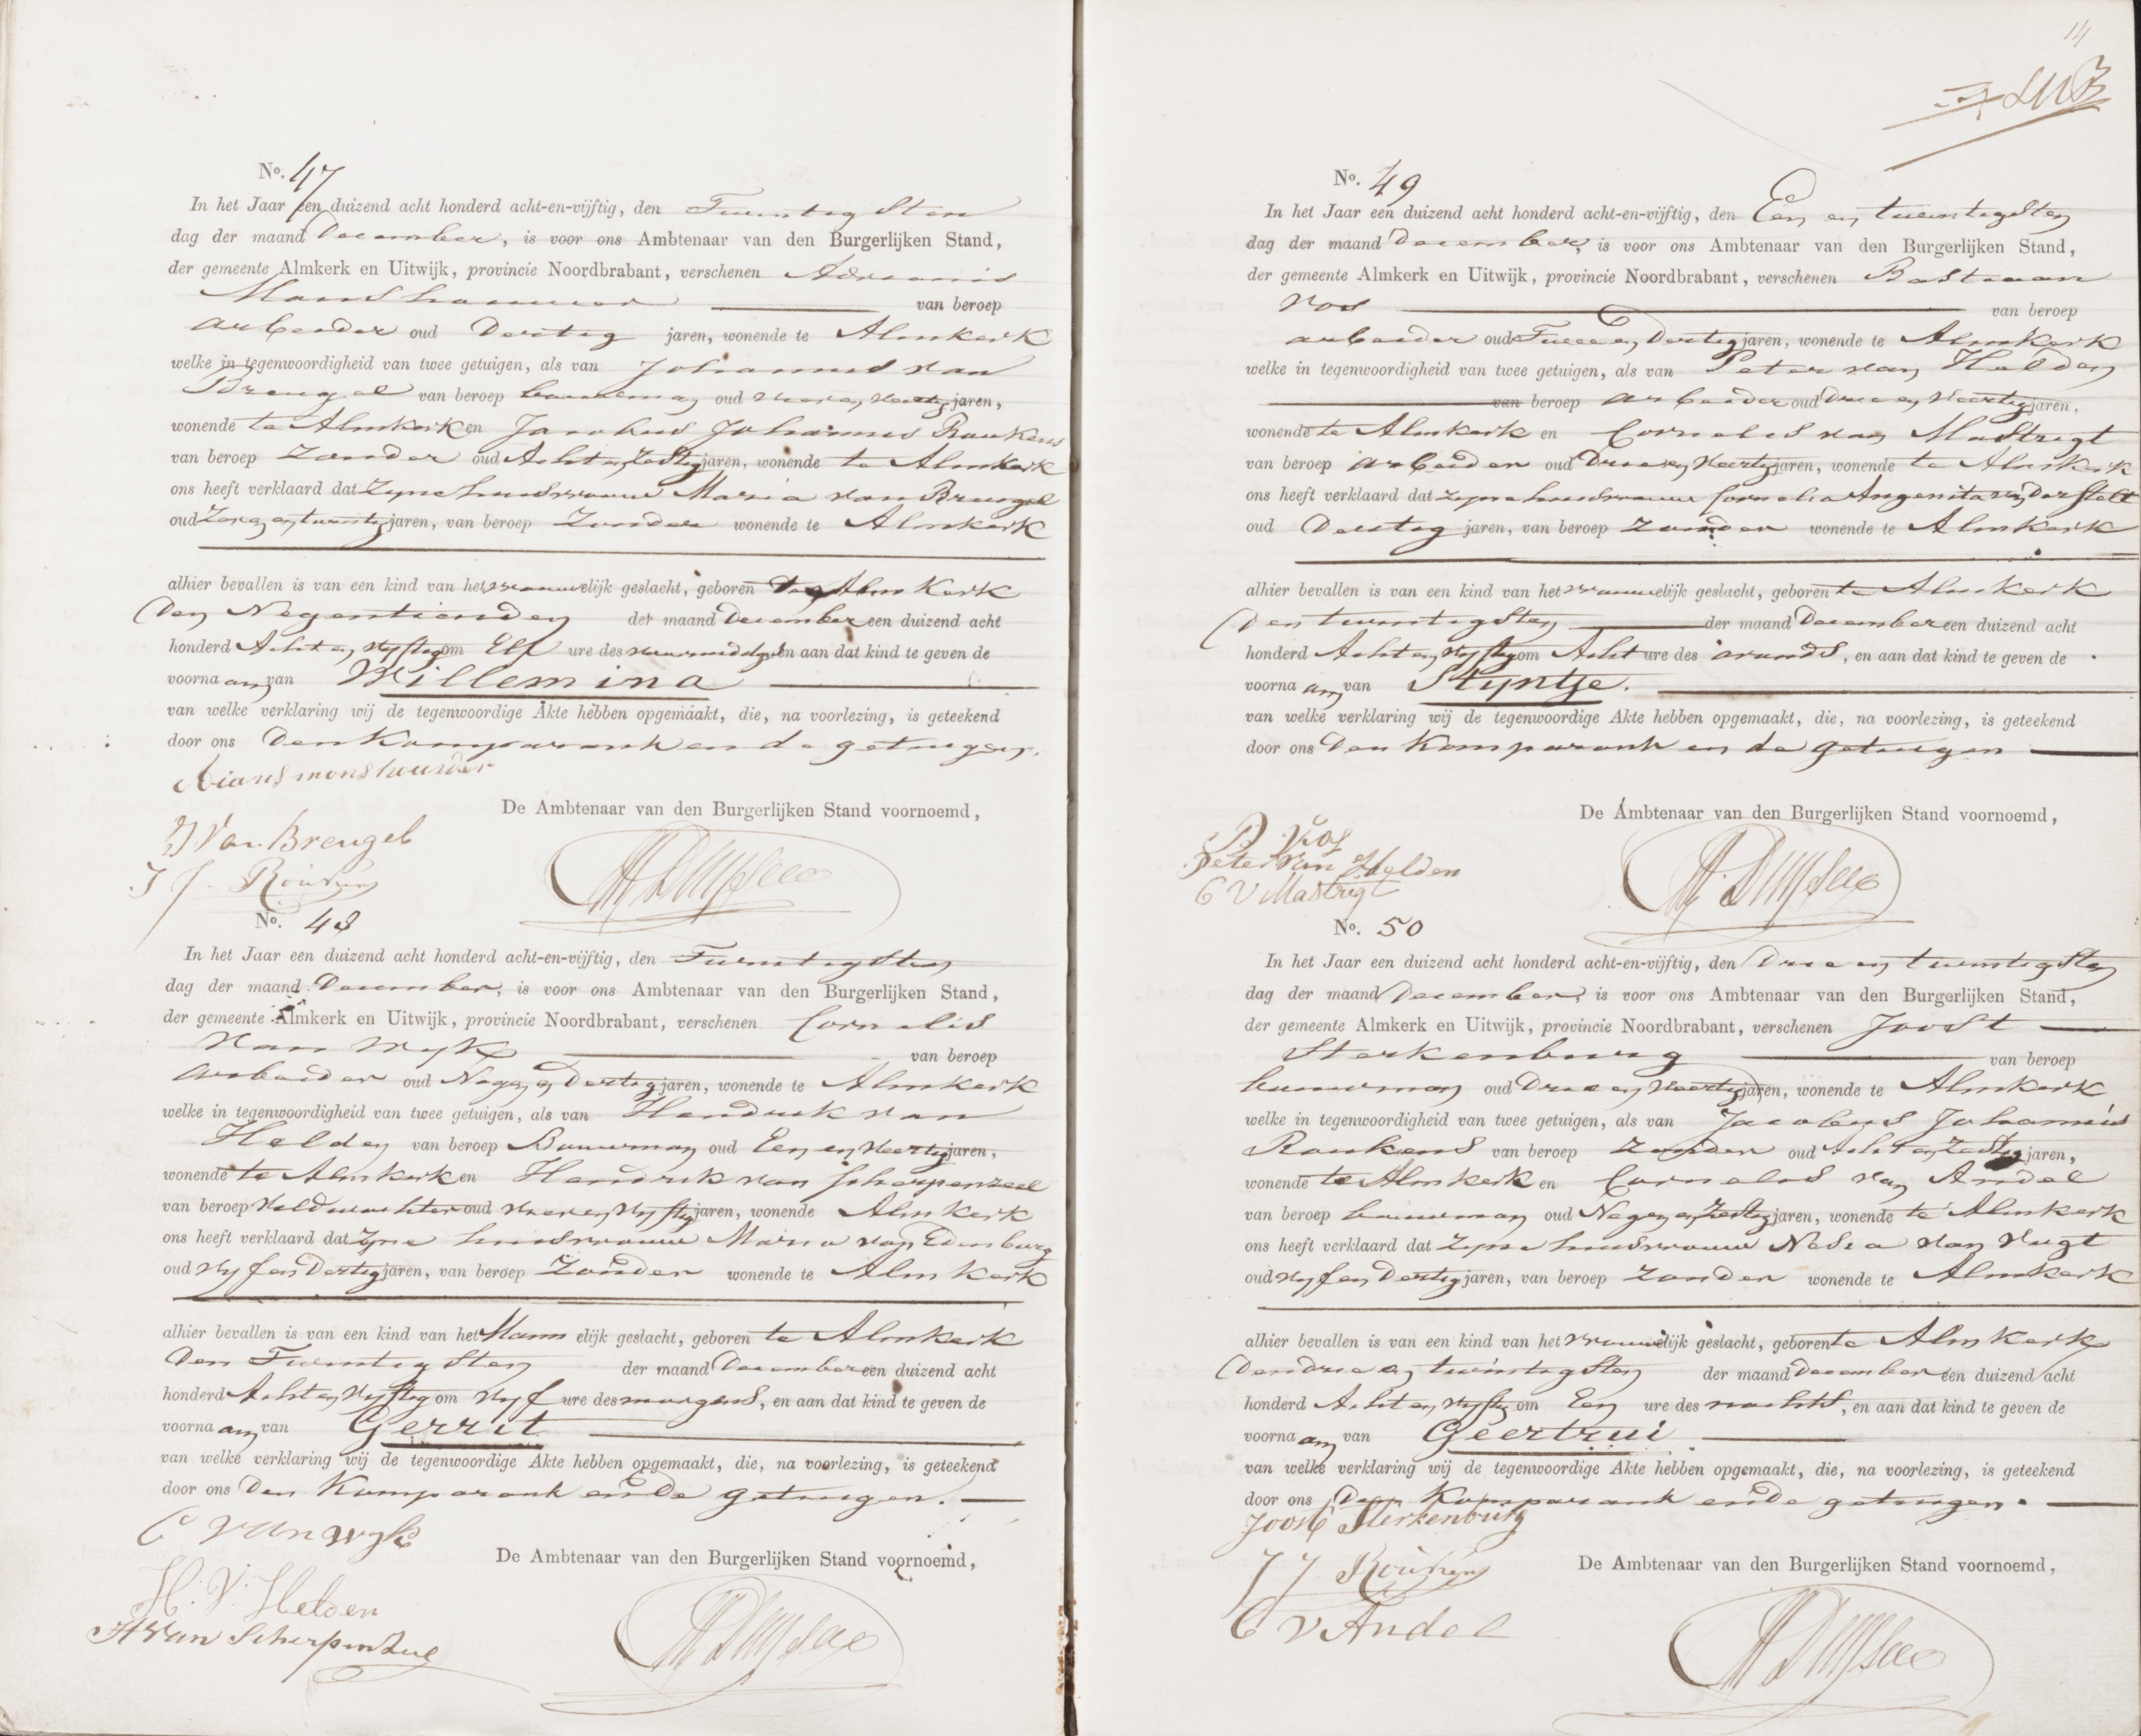 No. 47
In het Jaar een duizend acht honderd acht-en-vijftig, den Twintigsten
dag der maand December, is voor ons Ambtenaar van den Burgerlijken Stand,
der gemeente Almkerk en Uitwijk, provincie Noordbrabant, verschenen Adrianis
Monshouwer van beroep
arbeider oud Dertig jaren, wonende te Almkerk
welke in tegenwoordigheid van twee getuigen, als van Johannes van
Breugel van beroep bouwman oud vier en veertig jaren,
wonende te Almkerk en Jacobus Johannes Roukens
van beroep Zonder oud Acht en Zestig jaren, wonende te Almkerk
ons heeft verklaard dat Zyne huisvrouw Maria van Breugel
oud Zeven en twintig jaren, van beroep Zonder wonende te Almkerk
alhier bevallen is van een kind van het vrouwelijk geslacht, geboren te Almkerk
Den Negentienden der maand December een duizend acht
honderd Acht en vyftig om Elf ure des voormiddags en aan dat kind te geven de
voorna am van Willemina
van welke verklaring wij de tegenwoordige Akte hebben opgemaakt, die, na voorlezing, is geteekend
door ons Den Komparank en de getuigen.
Aians monshouwder
De Ambtenaar van den Burgerlijken Stand voornoemd,
J Van Breugel
J J. Roukens
No. 48
In het Jaar een duizend acht honderd acht-en-vijftig, den Twintigsten
dag der maand December, is voor ons Ambtenaar van den Burgerlijken Stand,
der gemeente Almkerk en Uitwijk, provincie Noordbrabant, verschenen Cornelis
van Wyk van beroep
arbeider oud Negen en Dertig jaren, wonende te Almkerk
welke in tegenwoordigheid van twee getuigen, als van Hendrik van
Helden van beroep Bouwman oud Een en Veertig jaren,
wonende te Almkerk en Hendrik van Scherpenzeel
van beroep Veldwachter oud vier en vyftig jaren, wonende Almkerk
ons heeft verklaard dat Zyne huisvrouw Maria van Edenburg
oud vyf en Dertig jaren, van beroep Zonder wonende te Almkerk
alhier bevallen is van een kind van het Mann elijk geslacht, geboren te Almkerk
Den Twintigsten der maand December een duizend acht
honderd Acht en vyftig om vyf ure des morgens, en aan dat kind te geven de
voorna am van Gerrit
van welke verklaring wij de tegenwoordige Akte hebben opgemaakt, die, na voorlezing, is geteekend
door ons Den Komparank en de getuigen.
C van wyk
De Ambtenaar van den Burgerlijken Stand voornoemd,
H. V. Helden
H Van Scherpenzeel
14
No. 49
In het Jaar een duizend acht honderd acht-en-vijftig, den Een en twintigsten
dag der maand December, is voor ons Ambtenaar van den Burgerlijken Stand,
der gemeente Almkerk en Uitwijk, provincie Noordbrabant, verschenen Bastiaan
Vos van beroep
arbeider oud Twee en Dertig jaren, wonende te Almkerk
welke in tegenwoordigheid van twee getuigen, als van Peter van Helden
van beroep arbeider oud Drie en Veertig jaren,
wonende te Almkerk en Cornelis van Mastrigt
van beroep arbeider oud Drie en Veertig jaren, wonende te Almkerk
ons heeft verklaard dat zyne huisvrouw Cornelia Angenita van der Stelt
oud Dertig jaren, van beroep zonder wonende te Almkerk
alhier bevallen is van een kind van het vrouwelijk geslacht, geboren te Almkerk
Den twintigsten der maand December een duizend acht
honderd Acht en vyftig om Acht ure des avonds, en aan dat kind te geven de
voorna am van Styntje.
van welke verklaring wij de tegenwoordige Akte hebben opgemaakt, die, na voorlezing, is geteekend
door ons Den Komparank en de getuigen
De Ambtenaar van den Burgerlijken Stand voornoemd,
B Vos
Peter van Helden
C V Mastrigt
No. 50
In het Jaar een duizend acht honderd acht-en-vijftig, den Drie en twintigsten
dag der maand December, is voor ons Ambtenaar van den Burgerlijken Stand,
der gemeente Almkerk en Uitwijk, provincie Noordbrabant, verschenen Joost
Sterkenburg van beroep
bouwman oud Drie en Veertig jaren, wonende te Almkerk
welke in tegenwoordigheid van twee getuigen, als van Jacobus Johannis
Roukens van beroep Zonder oud Acht en Zestig jaren,
wonende te Almkerk en Cornelis van Andel
van beroep bouwman oud Negen en Zestig jaren, wonende te Almkerk
ons heeft verklaard dat zyne huisvrouw Nesia van Vugt
oud vyf en Dertig jaren, van beroep zonder wonende te Almkerk
alhier bevallen is van een kind van het vrouwelijk geslacht, geboren te Almkerk
Den drie en twintigsten der maand December een duizend acht
honderd Acht en vyftig om Een ure des nachts, en aan dat kind te geven de
voorna am van Geertrui
van welke verklaring wij de tegenwoordige Akte hebben opgemaakt, die, na voorlezing, is geteekend
door ons Den Komparank en de getuigen.
Joost Sterkenburg
De Ambtenaar van den Burgerlijken Stand voornoemd,
J J. Roukens
C v Andel